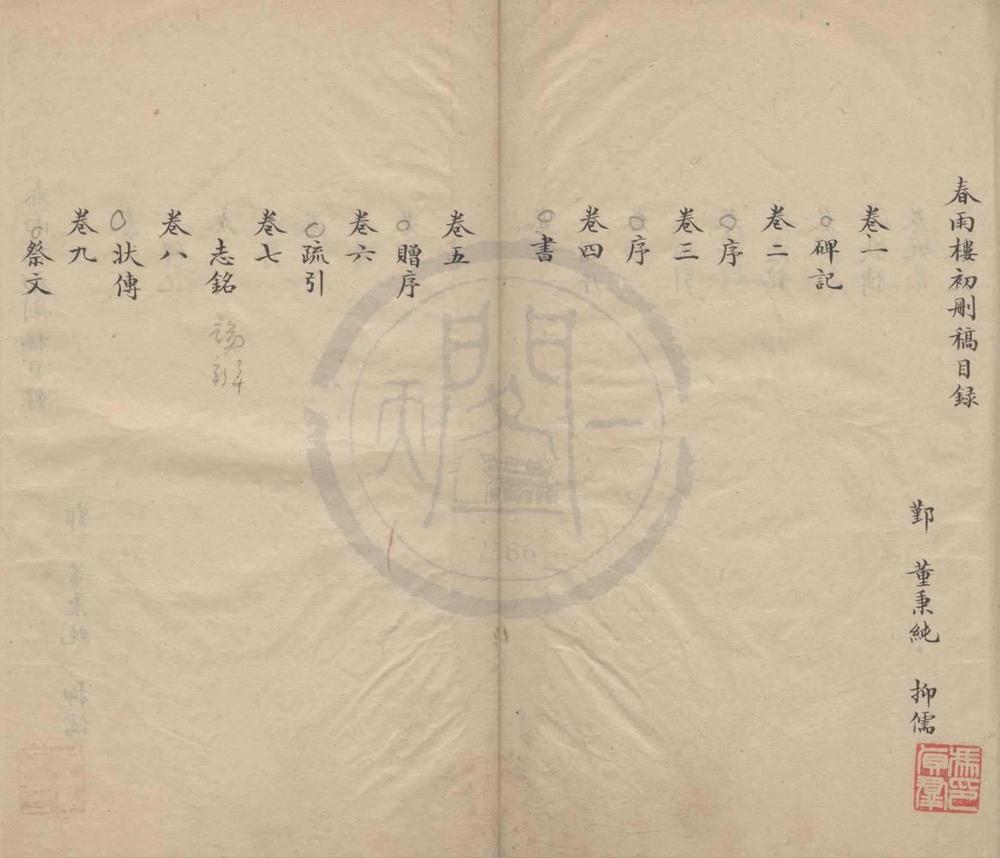 春雨樓初刪稿目録
鄞 董秉純 抑儒
卷一
碑記
卷二
序
卷三
序
卷四
書
卷五
贈序
卷六
疏引
卷七
志銘
卷八
狀傳
卷九
祭文
天一閣
1566